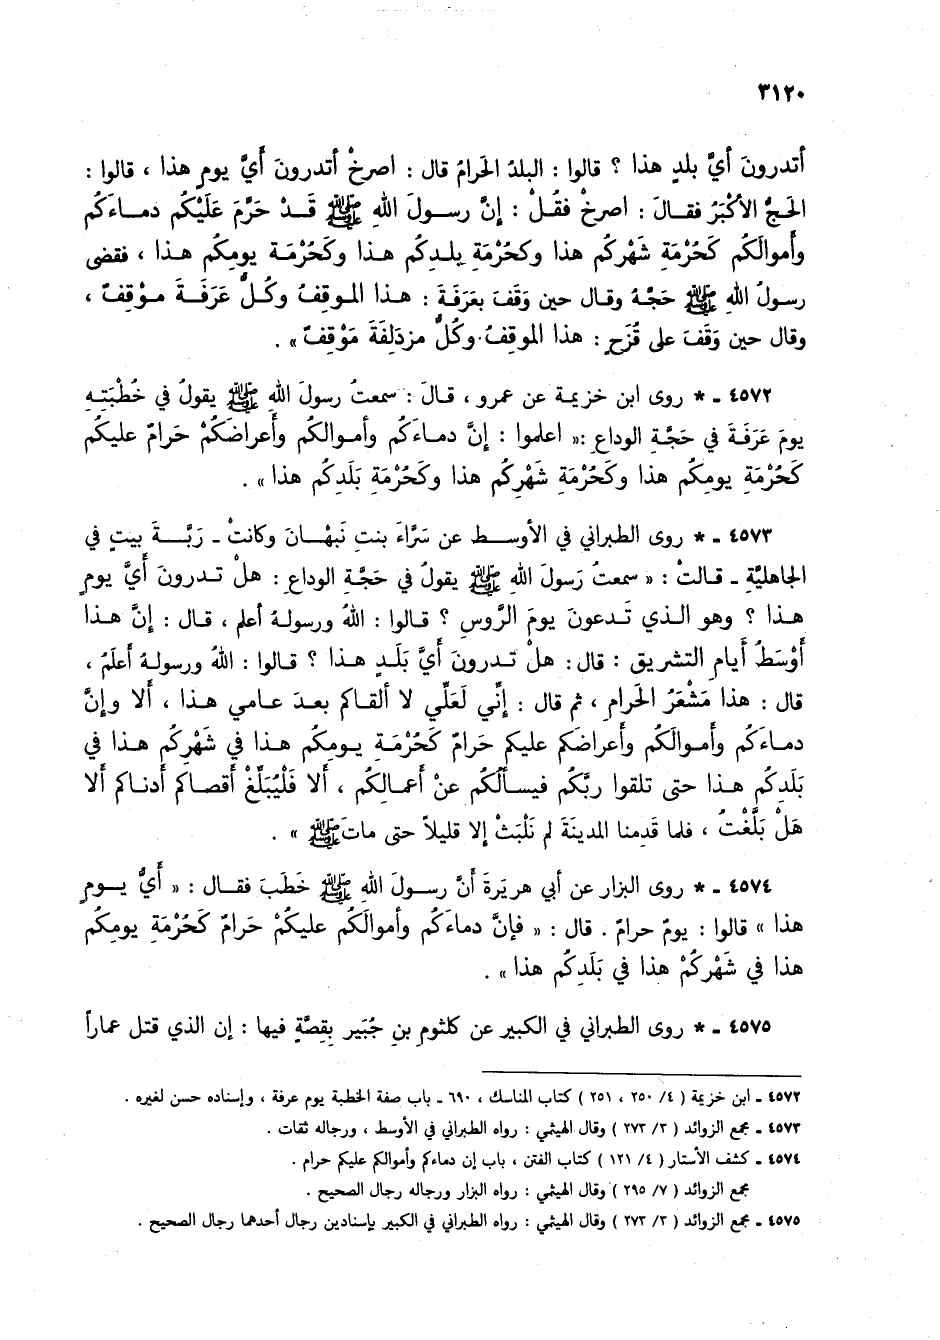 ٣١٢٠
أتدرونَ أيَّ بلدٍ هذا ؟ قالوا : البلدُ الحَرامُ قال : اصرخْ أتدرونَ أَيَّ يومٍ هذا ، قالوا :
الحَجُّ الأكْبَرُ فقـالَ : اصرخْ فقُـلْ : إنَّ رسـولَ اللهِ ﷺ قَـدْ حَرَّمَ عَلَيْكُم دمـاءَكُم
وأموالَكُم كَحُرْمَةِ شَهْرِكُم هذا وكحُرْمَةِ بلـدِكُم هـذا وكَحُرْمَـة يومِكُم هـذا ، فقضى
رسولُ اللهِ ﷺ حَجَّهُ وقال حين وَقَفَ بعَرَفَةَ : هـذا المـوقِفُ وكُـلُّ عَرَفَـةَ مـوْقِفٌ ،
وقال حين وَقَفَ على قُزَحٍ : هذا الموقِفُ وكُلُّ مزدَلِفَةَ مَوْقِفٌ » .
٤٥٧٢ ـ * روى ابن خزيمة عن عمرو ، قـالَ : سمعتُ رسولَ اللهِ ﷺ يقولُ في خُطْبَتِـهِ
يومَ عَرَفَةَ في حَجَّةِ الوداعِ :« اعلموا : إنَّ دماءَكُم وأمـوالكُم وأعراضَكُمْ حَرامٌ عليكُم
كَحُرْمَةِ يومِكُم هذا وكَحُرْمَةِ شَهْرِكُم هذا وكَحُرْمَةِ بَلَدِكُم هذا » .
٤٥٧٣ ـ * روى الطبراني في الأوسـط عن سَرَّاءَ بنتِ نَبهْـانَ وكانتْ ـ رَبَّـةَ بيتٍ في
الجاهليَّةِ ـ قـالتْ : « سمعتُ رَسولَ اللهِ ﷺ يقولُ في حَجَّةِ الوداعِ : هلْ تـدرونَ أَيَّ يومٍ
هـذا ؟ وهو الـذي تَـدعونَ يومَ الرَّوسِ ؟ قـالوا : اللهُ ورسولـهُ أعلم ، قـال : إنَّ هـذا
أَوْسَطُ أيامِ التشريقِ : قال: هلْ تـدرونَ أيَّ بَلَـدٍ هـذا ؟ قـالوا : اللهُ ورسولـهُ أعلَمُ ،
قال : هذا مَشْعَرُ الحَرامِ ، ثم قال : إنِّي لَعَلِّي لا ألقـاكم بعـدَ عـامي هـذا ، ألا وإنَّ
دماءَكُم وأمـوالَكُم وأعراضَكم عليكم حَرامٌ كَحُرْمَـةِ يـومِكُم هـذا في شَهْرِكُم هـذا في
بَلَدِكُم هـذا حتى تلقوا ربَّكُم فيسـألُكُم عنْ أعمـالِكُم ، ألا فَلْيُبَلِّغْ أقصـاكم أدنـاكم ألا
هَلْ بَلَّغْتُ ، فلما قَدِمنا المدينَةَ لم نَلْبَثْ إلا قليلاً حتى ماتَ ﷺ » .
٤٥٧٤ ـ * روى البزار عن أبي هريَرةَ أنَّ رسـولَ اللهِ ﷺ خَطَبَ فقـال : « أَيُّ يـومٍ
هذا » قالوا : يومٌ حرامٌ . قال : « فإنَّ دماءَكُم وأموالَكُم عليكُمْ حَرامٌ كَحُرْمَةِ يومِكُم
هذا في شَهْرِكُمْ هذا في بَلَدِكُم هذا » .
٤٥٧٥ ـ * روى الطبراني في الكبير عن كلثومِ بنِ جُبَيرٍ بقِصَّةٍ فيها : إن الذي قتل عماراً
٤٥٧٢ ـ ابن خزيمة ( ٤/ ٢٥٠ ، ٢٥١ ) كتاب المناسك ، ٦٩٠ ـ باب صفة الخطبة يوم عرفة ، وإسناده حسن لغيره .
٤٥٧٣ ـ مجمع الزوائد ( ٣/ ٢٧٣ ) وقال الهيثمي : رواه الطبراني في الأوسط ، ورجاله ثقات .
٤٥٧٤ ـ كشف الأستار ( ٤/ ١٢١ ) كتاب الفتن ، باب إن دماءكم وأموالكم عليكم حرام .
مجمع الزوائد ( ٧/ ٢٩٥ ) وقال الهيثمي : رواه البزار ورجاله رجال الصحيح .
٤٥٧٥ ـ مجمع الزوائد ( ٣/ ٢٧٣ ) وقال الهيثمي : رواه الطبراني في الكبير بإسنادين رجال أحدهما رجال الصحيح .